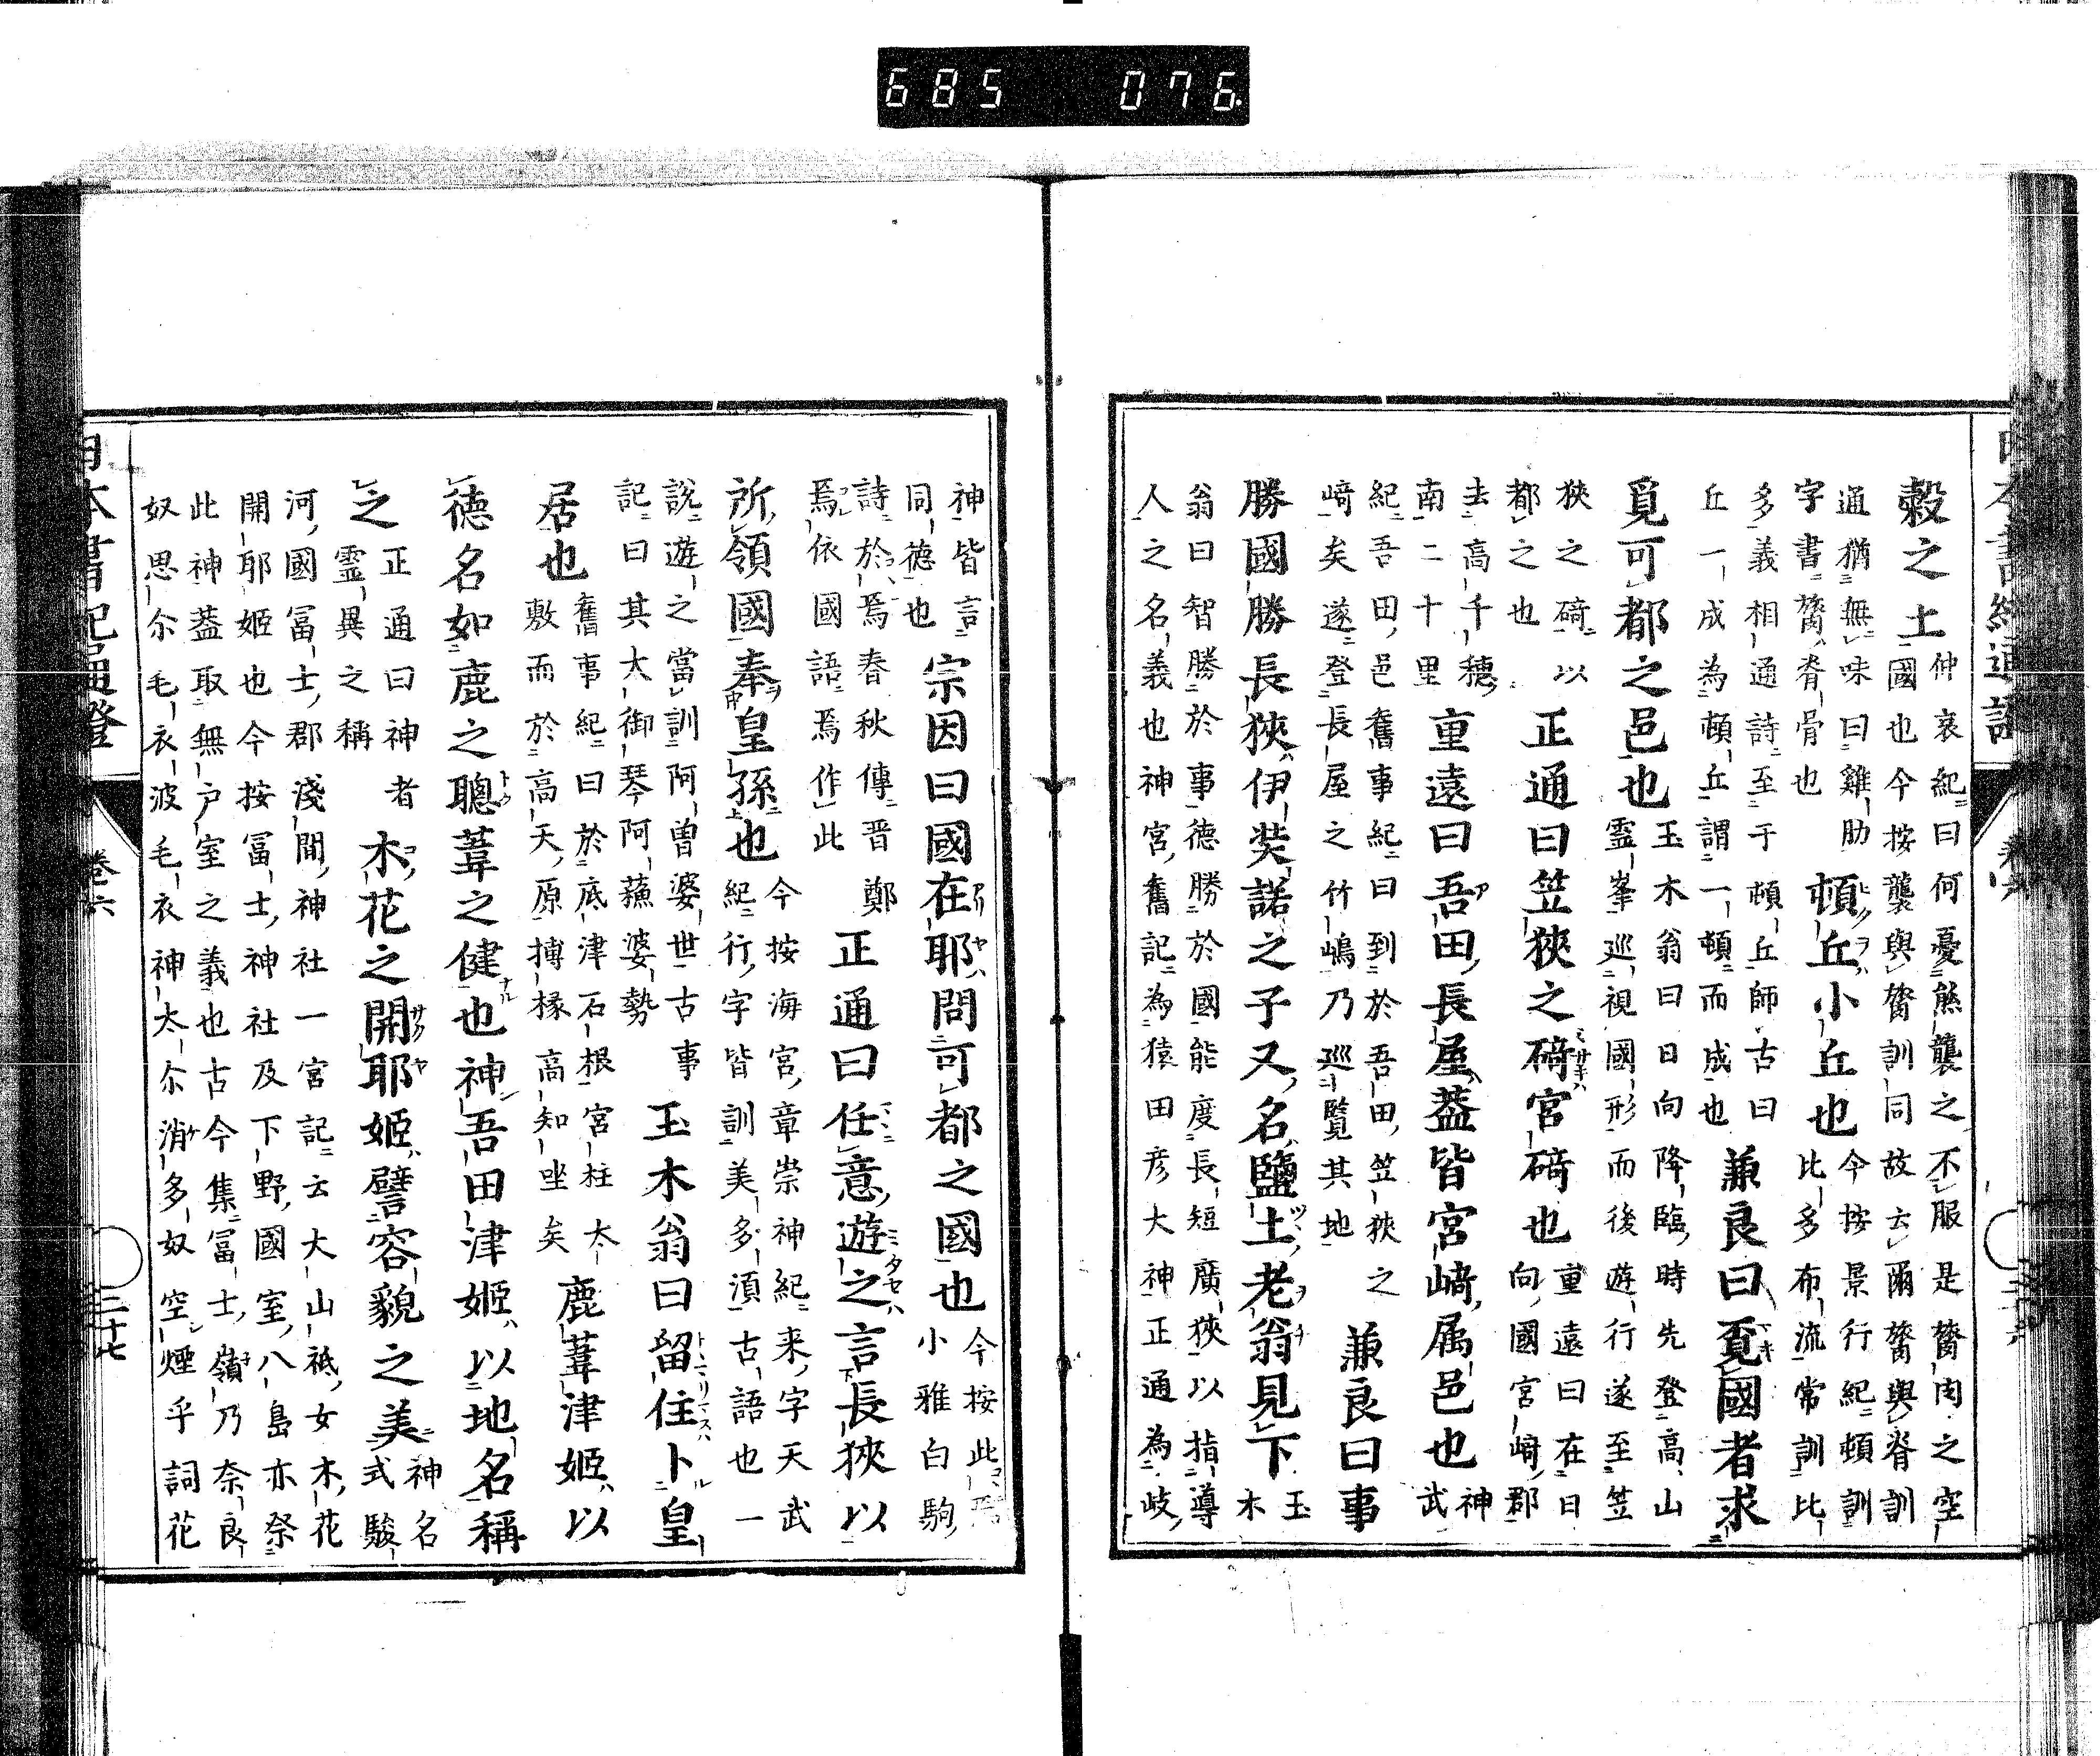 685 076
穀之土仲哀紀曰何憂熊襲之不服是膂肉之空
國也今按襲與膂訓同故云爾膂與脊訓
通猶無味曰雞肋
字書膂脊骨也
頓丘小丘也今按景行紀頓訓
比多布流常訓比
多義相通詩至于頓丘師古曰
丘一成為頓丘謂一頓而成也
兼良曰覓國者求
覓可都之邑也玉木翁曰日向降臨時先登高山
霊峯巡視國形而後遊行遂至笠
狹之碕以
都之也
正通曰笠狹之碕宮碕也重遠曰在日
向國宮崎郡
去高千穗
南二十里
重遠曰吾田長屋葢皆宮崎属邑也神
武
紀吾田邑舊事紀曰到於吾田笠狹之
崎矣遂登長屋之竹嶋乃巡覧其地
兼良曰事
勝國勝長狹伊奘諾之子又名鹽土老翁見下玉
木
翁曰智勝於事德勝於國能度長短廣狹以指導
人之名義也神宮舊記為猿田彦大神正通為岐
神皆言
同德也
宗因曰國在耶問可都之國也今按此
小雅白駒
詩於焉春秋傳晋鄭
焉依國語焉作此
正通曰任意遊之言長狹以
所領國奉皇孫也今按海宮章崇神紀来字天武
紀行字皆訓美多湏古語也一
説遊之當訓阿曽婆世古事
記曰其大御琴阿蘓婆勢
玉木翁曰留住卜皇
居也舊事紀曰於底津石根宮柱太
敷而於高天原搏椽高知坐矣
鹿葦津姬以
徳名如鹿之聰葦之健也神吾田津姬以地名稱
之正通曰神者
霊異之稱
木花之開耶姬譬容貌之美神名
式駿
河國冨士郡淺間神社一宮記云大山祗女木花
開耶姬也今按冨士神社及下野國室八島亦祭
此神葢取無戸室之義也古今集冨士嶺乃奈良
奴思尓毛衣波毛衣神太尓消多奴空煙乎詞花
日本書紀通證
卷六
三十七